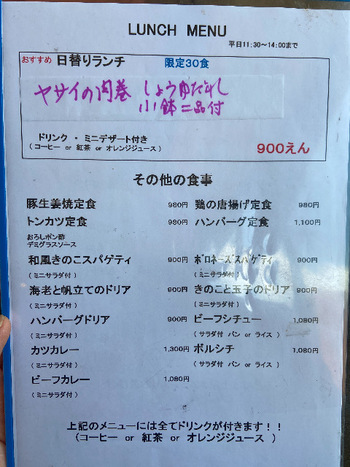 LUNCH MENU
平日11:30～14:00まで
おすすめ 日替りランチ 限定30食
ヤサイの肉巻 しょうゆだれ
小鉢二品付
ドリンク ・ ミニデザート付き
(コーヒー or 紅茶 or オレンジジュース)
900えん
その他の食事
豚生姜焼定食 980円 鶏の唐揚げ定食 980円
トンカツ定食 980円 ハンバーグ定食 1,100円
おろしポン酢
デミグラスソース
和風きのこスパゲティ 900円 ボロネーズスパゲティ 900円
(ミニサラダ付) (ミニサラダ付)
海老と帆立てのドリア 900円 きのこと玉子のドリア 900円
(ミニサラダ付) (ミニサラダ付)
ハンバーグドリア 900円 ビーフシチュー 1,080円
(ミニサラダ付) (サラダ付 パン or ライス)
カツカレー 1,300円 ボルシチ 1,080円
(ミニサラダ付) (サラダ付 パン or ライス)
ビーフカレー 1,080円
(ミニサラダ付)
上記のメニューには全てドリンクが付きます！！
(コーヒー or 紅茶 or オレンジジュース )